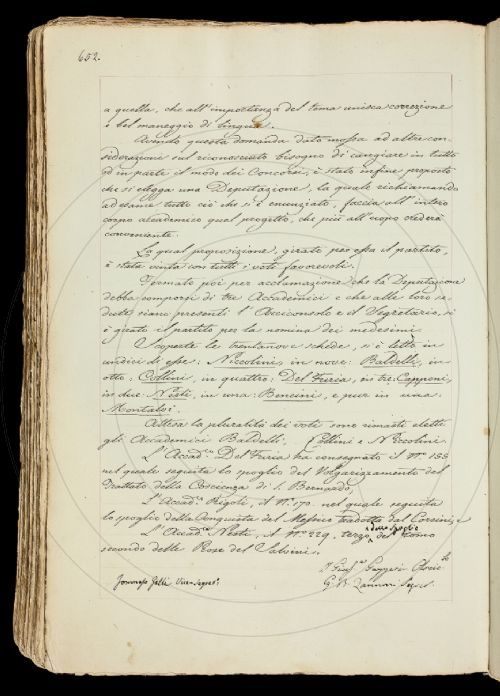 652.
a quella, che all'importanza del tema unisca correzione
e bel maneggio di lingua.
Avendo questa domanda dato mossa ad altre con-
siderazioni sul riconosciuto bisogno di cangiare in tutto
od in parte il modo dei Concorsi, è stato infine proposto
che si elegga una Deputazione, la quale richiamando
ad esame tutto ciò che si è enunziato, faccia all'intero
corpo accademico quel progetto, che più all'uopo crederà
conveniente.
La qual proposizione, girato per essa il partito,
è stata vinta con tutti i voti favorevoli.
Fermato poi per acclamazione che la Deputazione
debba comporsi di tre Accademici e che alle loro se-
dute siano presenti l'Arciconsolo e il Segretario, si
è girato il partito per la nomina dei medesimi.
Scoperte le trentanove schede, si è letto in
undici di esse: Niccolini, in nove: Baldelli, in
otto: Collini, in quattro: Del Furia, in tre: Capponi,
in due: Nesti, in una: Bencini, e pur in una:
Montalvi.
Attesa la pluralità dei voti sono rimasti eletti
gli Accademici Baldelli, Collini e Niccolini.
L'Accad.co Del Furia ha consegnato il N.o 188
nel quale seguita lo spoglio del Volgarizzamento del
Trattato della Coscienza di S. Bernardo.
L'Accad.co Rigoli, il N.o 170. nel quale seguita
lo spoglio della Conquista del Messico tradotta dal Corsini, e
L'Accad.co Nesti, il N.o 229. terzo dello Spoglio del Tomo
secondo delle Rose del Valsini.
Arcic.lo
Tommaso Gelli Vice-Segret.o
G. B. Zannoni Segret.